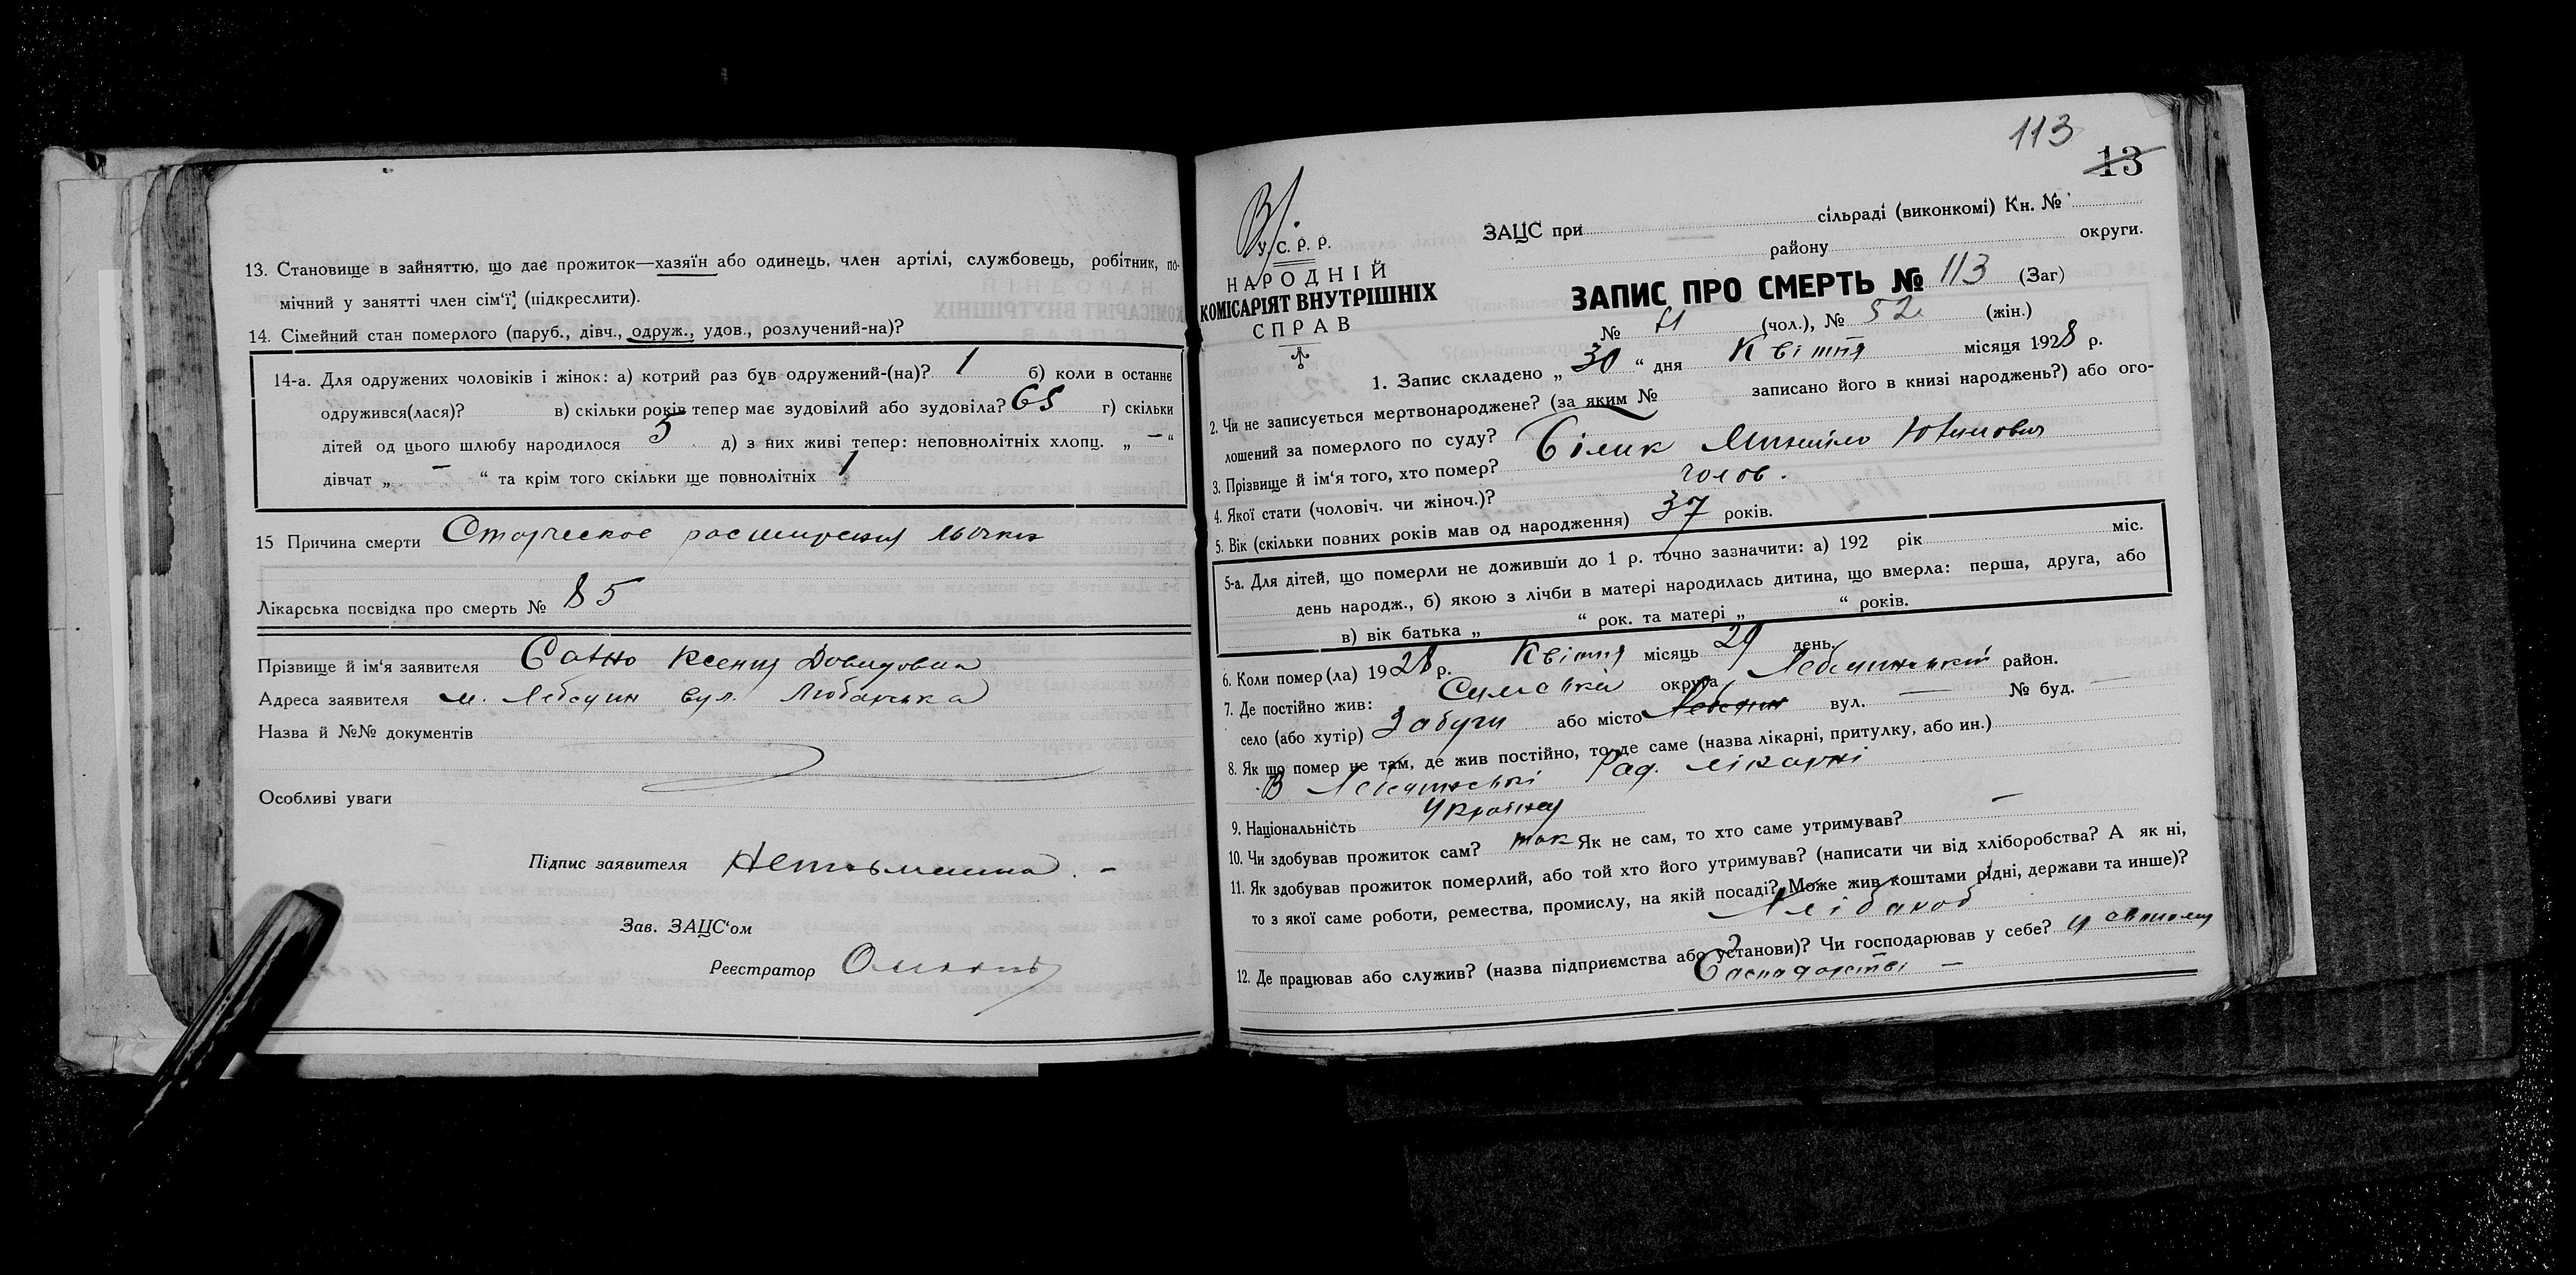 13. Становище в зайняттю, що дає прожиток—хазяїн або одинець, член артілі, службовець, робітник, по-
мічний у занятті член сім'ї (підкреслити).
14. Сімейний стан померлого (паруб., дівч., одруж., удов., розлучений-на)?
14-а. Для одружених чоловіків і жінок: а) котрий раз був одружений-(на)? 1 б) коли в останнє
одружився(лася)? в) скільки років тепер має зудовілий або зудовіла? 65 г) скільки
дітей од цього шлюбу народилося 5 д) з них живі тепер: неповнолітніх хлопц. „ — “
дівчат „ — “ та крім того скільки ще повнолітніх 1
15 Причина смерти
Лікарська посвідка про смерть № 85
Прізвище й ім'я заявителя Ксения Довидовна
Адреса заявителя м. Лебедин вул.
Назва й №№ документів
Особливі уваги
Підпис заявителя
Зав. ЗАЦС'ом
Реєстратор
113
13
У. С. Р. Р.
НАРОДНІЙ
КОМІСАРІЯТ ВНУТРІШНІХ
СПРАВ
ЗАЦС при сільраді (виконкомі) Кн. №
району округи.
ЗАПИС ПРО СМЕРТЬ № 113 (Заг)
№ (чол.), № 52 (жін.)
1. Запис складено „ 30 “ дня Квітня місяця 1928 р.
2. Чи не записується мертвонароджене? (за яким № записано його в книзі народжень?) або ого-
лошений за померлого по суду?
3. Прізвище й ім'я того, хто помер? Білик Михайло
4. Якої стати (чоловіч. чи жіноч.)? чолов.
5. Вік (скільки повних років мав од народження) 37 років.
5-а. Для дітей, що померли не доживши до 1 р. точно зазначити: а) 192 рік міс.
день народж., б) якою з лічби в матері народилась дитина, що вмерла: перша, друга, або
в) вік батька „ “ рок. та матері „ “ років.
6. Коли помер(ла) 1928 р. Квітня місяць 29 день.
7. Де постійно жив: Сумській округа Лебединський район.
село (або хутір) Забуги або місто Лебедин вул. — № буд. —
8. Як що помер не там, де жив постійно, то де саме (назва лікарні, притулку, або ин.)
В Лебединські Рад. лікарні
9. Національність Україна
10. Чи здобував прожиток сам? так Як не сам, то хто саме утримував? —
11. Як здобував прожиток померлий, або той хто його утримував? (написати чи від хліборобства? А як ні,
то з якої саме роботи, ремества, промислу, на якій посаді? Може жив коштами рідні, держави та инше)?
12. Де працював або служив? (назва підприємства або установи)? Чи господарював у себе? У своєму
Господарстві —